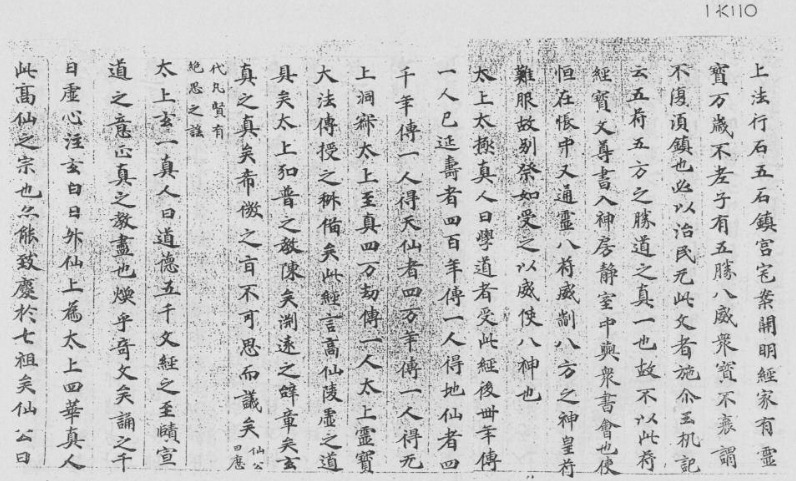 1K110
上法行石五石鎮宮宅案開明經家有靈
寶万歲不老子有五勝八威衆寶不衰謂
不復須鎮也必以治民无此文者施尒玉机記
云五符五方之勝道之真一也故不以此符
經寶文尊書入神房靜室中與衆書會也使
恒在帳中又通靈八符威制八方之神皇符
難服故别祭如受之以威使八神也
太上太極真人曰學道者受此經後卌年傳
一人已延壽者四百年傳一人得地仙者四
千年傳一人得天仙者四万年傳一人得无
上洞寂太上至真四万劫傳一人太上靈寶
大法傳授之科備矣此經言高仙陵虛之道
具矣太上弘普之教陳矣渕遠之辝章矣玄
真之真矣希微之㫖不可思而議矣 仙公曰應
代凡賢有絶思之誼
太上玄一真人曰道德五千文經之至賾宣
道之意正真之教盡也煥乎奇文矣誦之千
日虛心注玄白日昇仙上爲太上四華真人
此高仙之宗也尒能致慶於七祖矣仙公曰